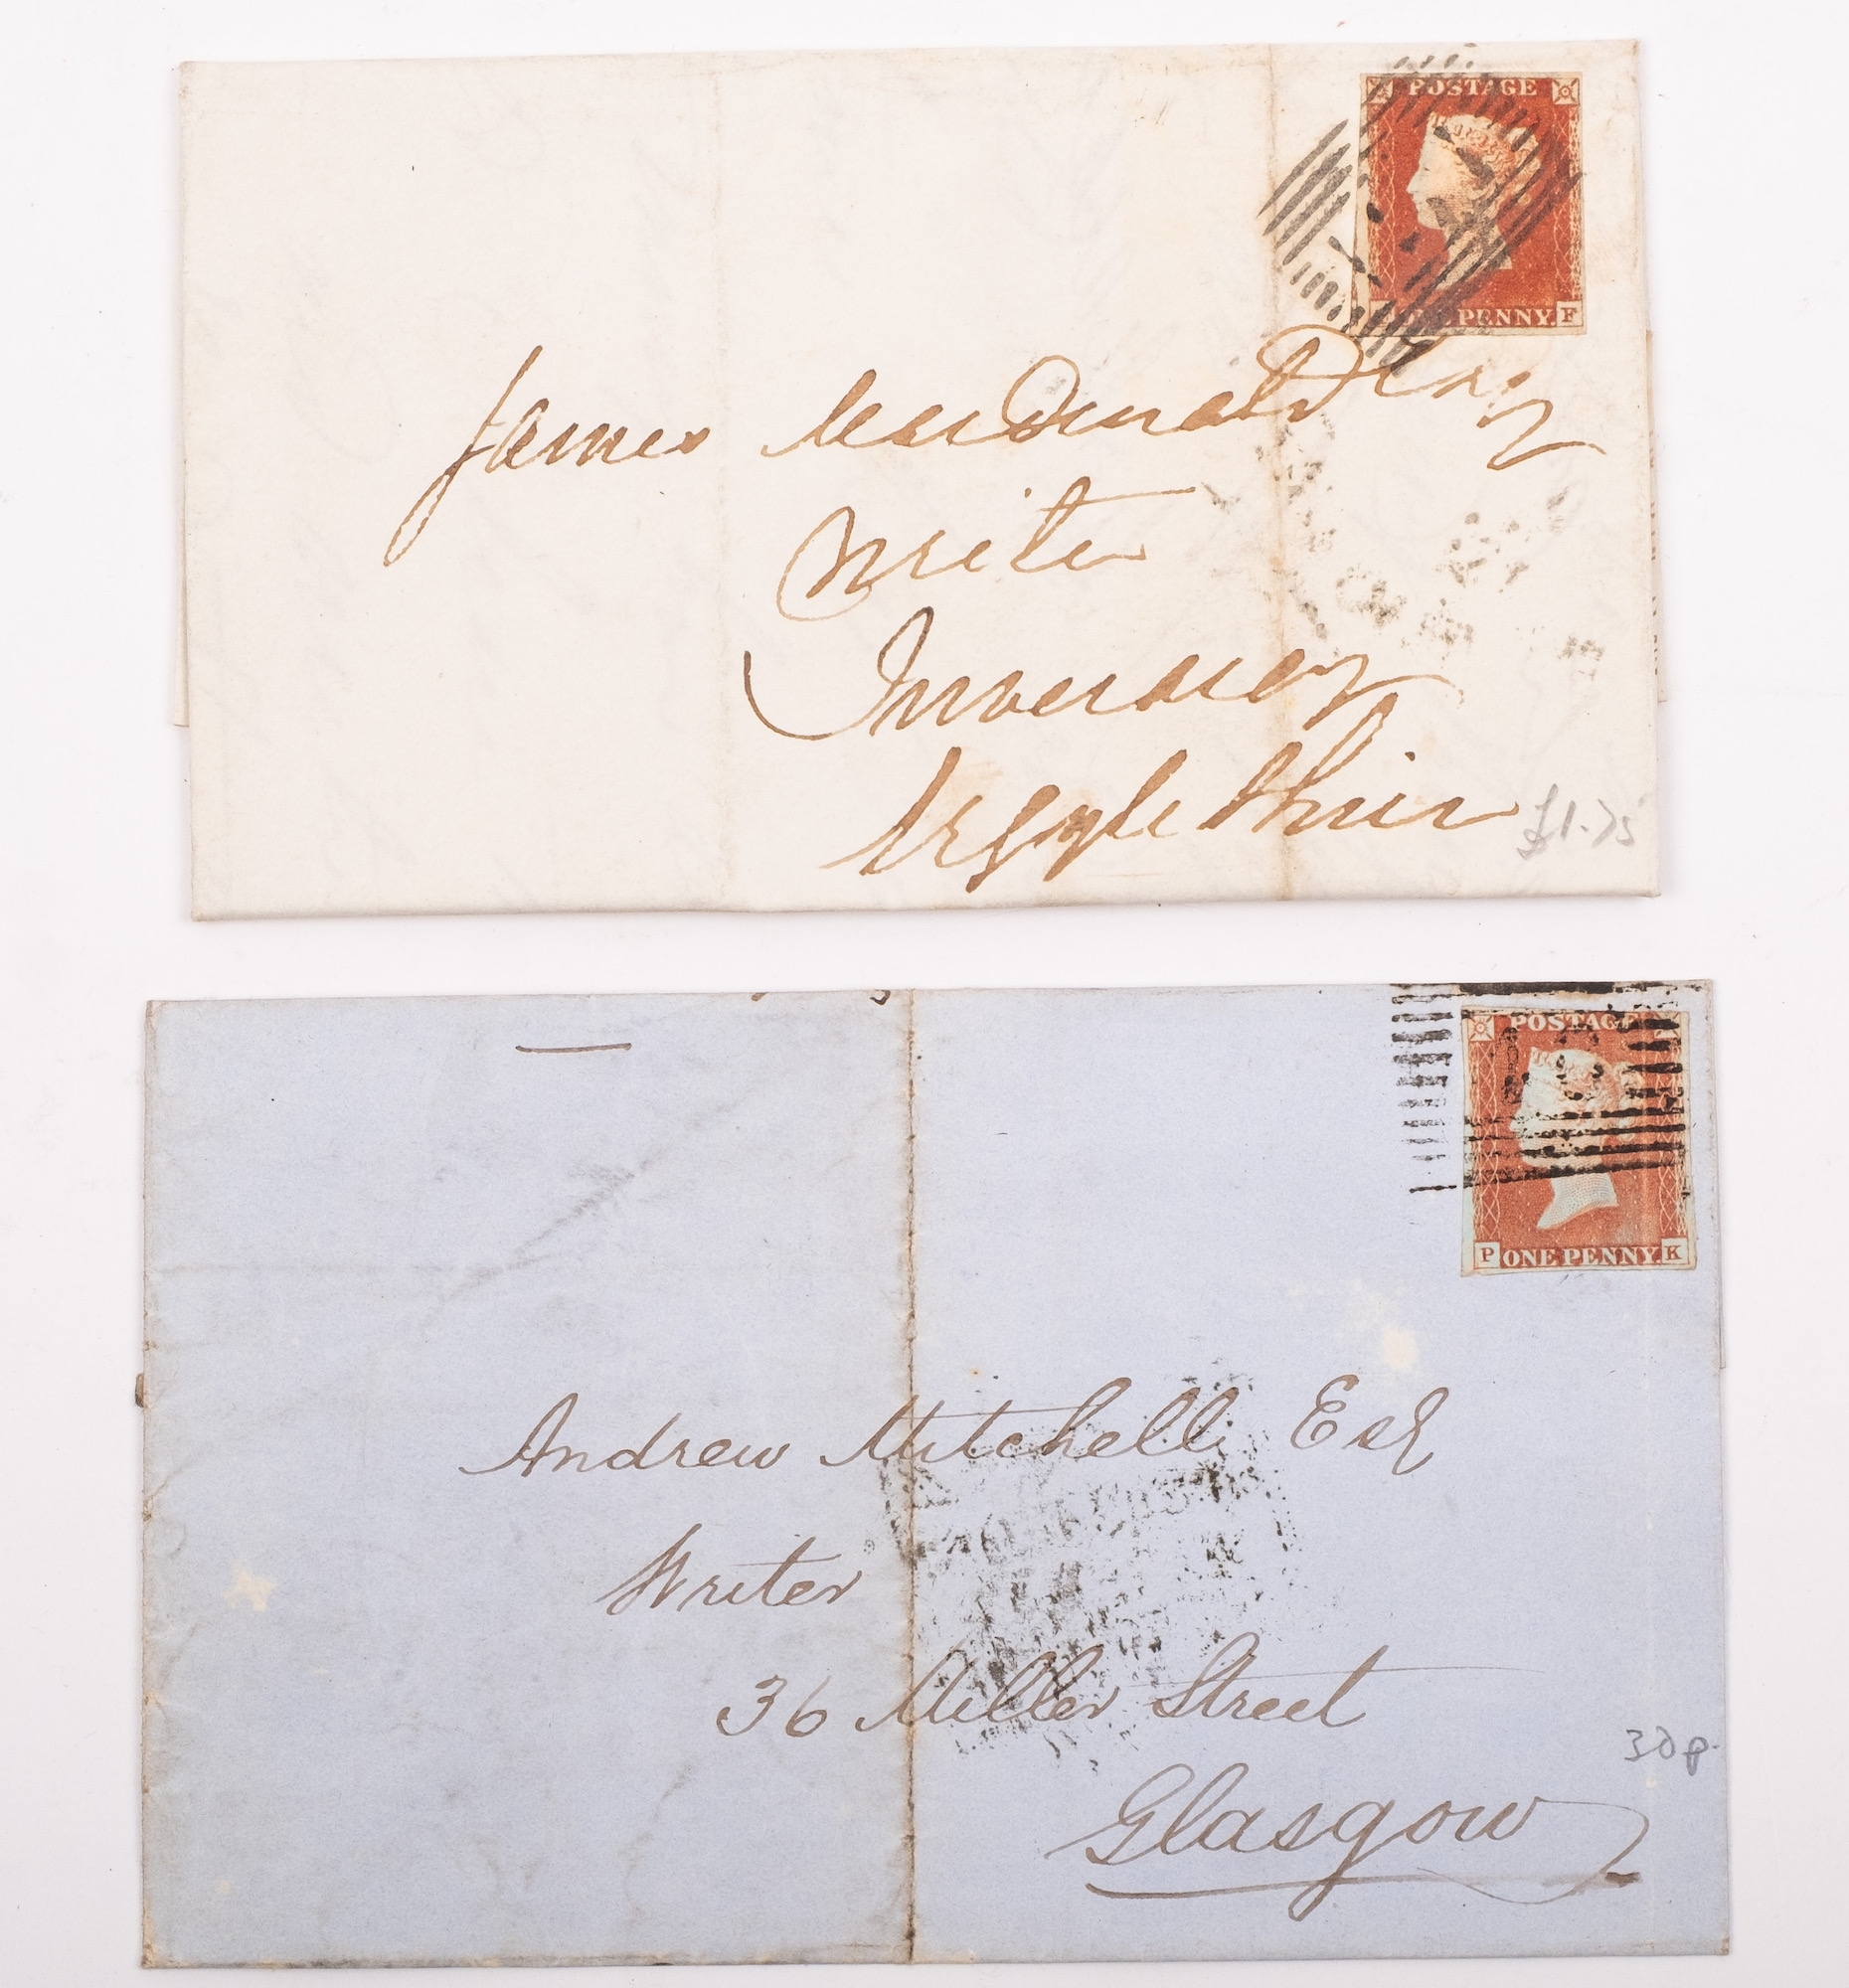 POSTAGE
PENNY. F
James MacDonald Esq
Writer
Inveraray
Argyle Shire
£1.75
POSTAGE
P ONE PENNY. K
Andrew Mitchell Esq
Writer
36 Miller Street
Glasgow
30p.